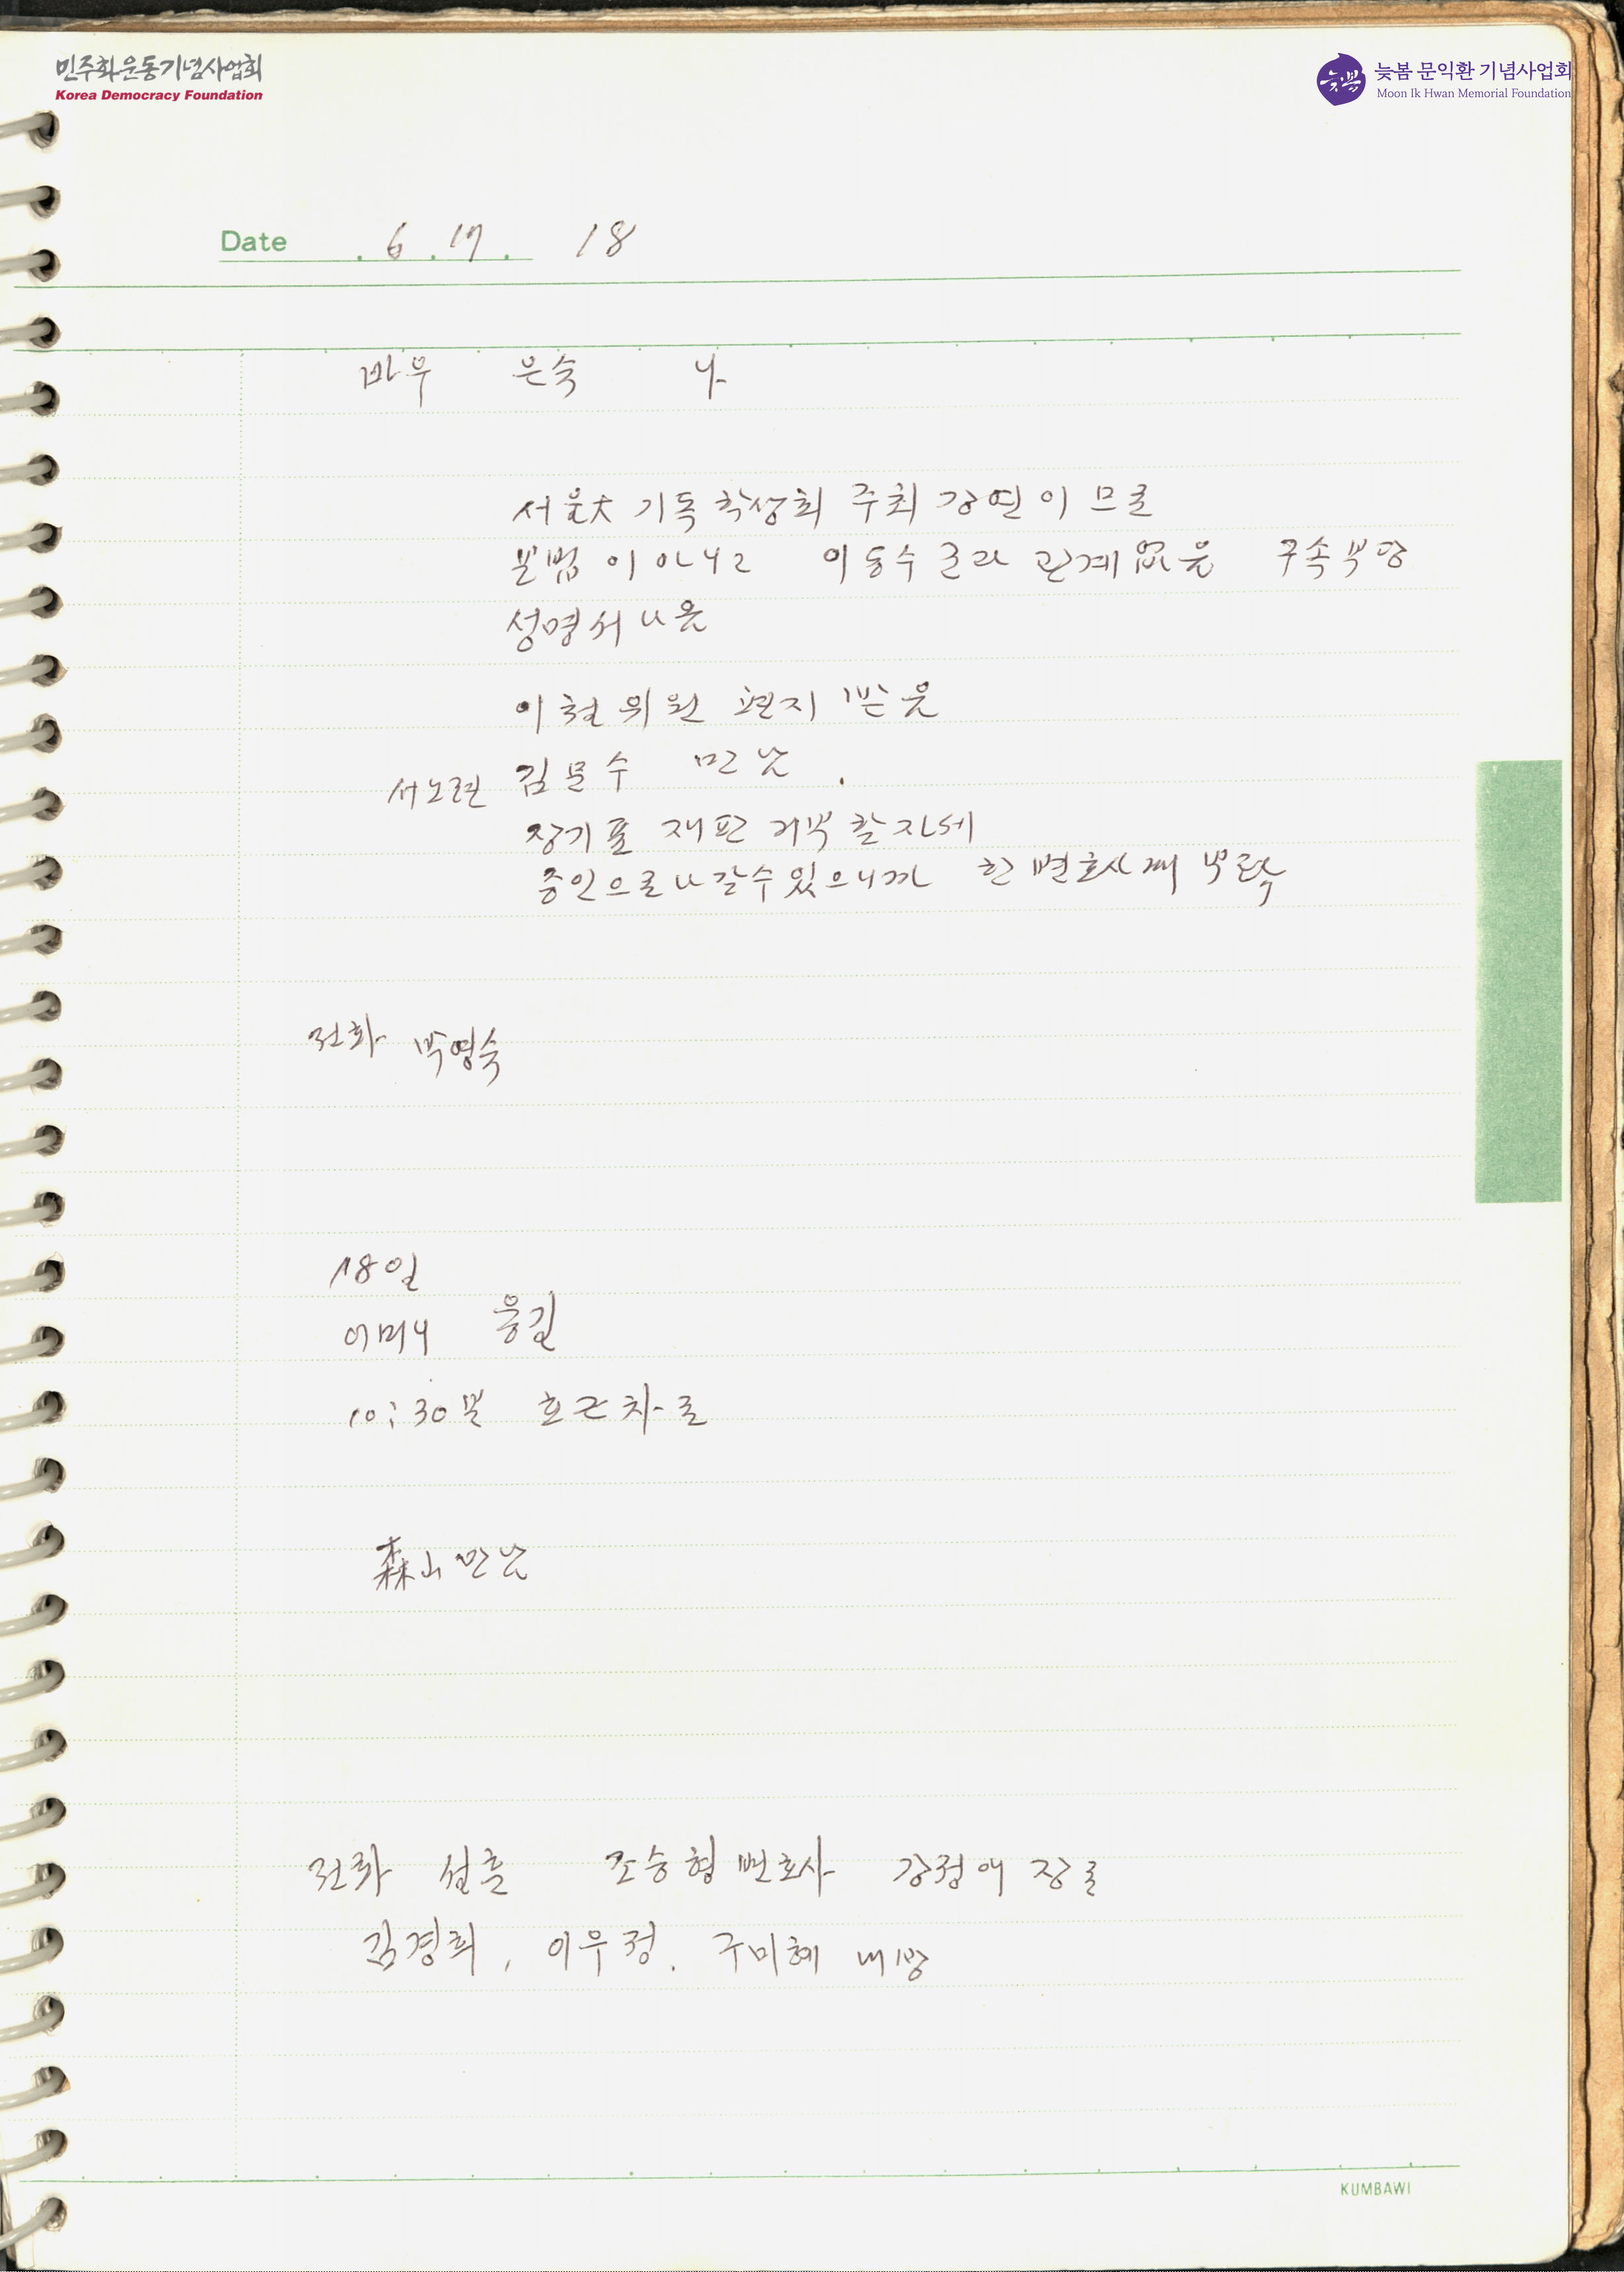 민주화운동기념사업회
Korea Democracy Foundation
늦봄 문익환 기념사업회
Moon Ik Hwan Memorial Foundation
Date . 6 . 17 . 18
바우 은숙 나
서울大 기독학생회 주최 강연이므로
불법이 아니고 이동수군과 관계없음 구속부당
성명서 나옴
이철위원 편지 받음
서노련 김문수 만남.
장기표 재판 거부할 자세
증인으로 나갈 수 있으니까 한변호사께 부탁
전화 박영숙
18일
어머니 웅길
10:30분 호근 차로
森山 만남
전화 설훈 조승형 변호사 강정애 장로
김경희, 이우정. 구미혜 내방
KUMBAWI